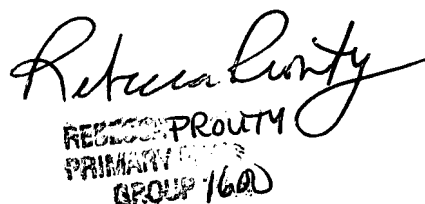 Rebecca Prouty
REBECCA PROUTY
PRIMARY
GROUP 1600